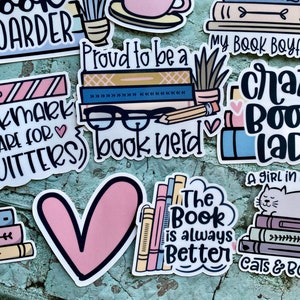 BOOK
HOARDER
MY BOOK BOYF
Proud to be a
book nerd
ARE FOR
CRAZY
BOOK
LAD
The
Book
is always
Better
A GIRL IN
CATS & BO